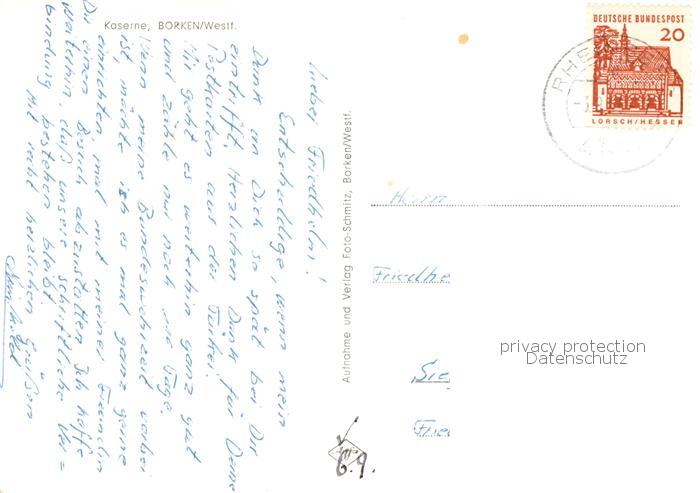 Kaserne, BORKEN/Westf.
Lieber Friedhelm!
Entschuldige, wenn mein
Dank an Dich so spät bei Dir
eintrifft. Herzlichen Dank für Deine
Postkarten aus der Türkei.
Mir geht es weiterhin ganz gut
und zähle nur noch die Tage.
Wenn meine Bundeswehrzeit vorbei
ist, möchte ich es mal ganz gerne
einrichten, mal mit meiner Freundin
Dir einen Besuch abzustatten. Ich hoffe
weiterhin, daß unsere schriftliche Ver=
bindung bestehen bleibt.
Mit recht herzlichen Grüßen
Aufnahme und Verlag Foto-Schmitz, Borken/Westf.
DEUTSCHE BUNDESPOST
20
LORSCH/HESSEN
RHE
Herrn
Friedhe
Sie
Frie
6.9.
privacy protection
Datenschutz